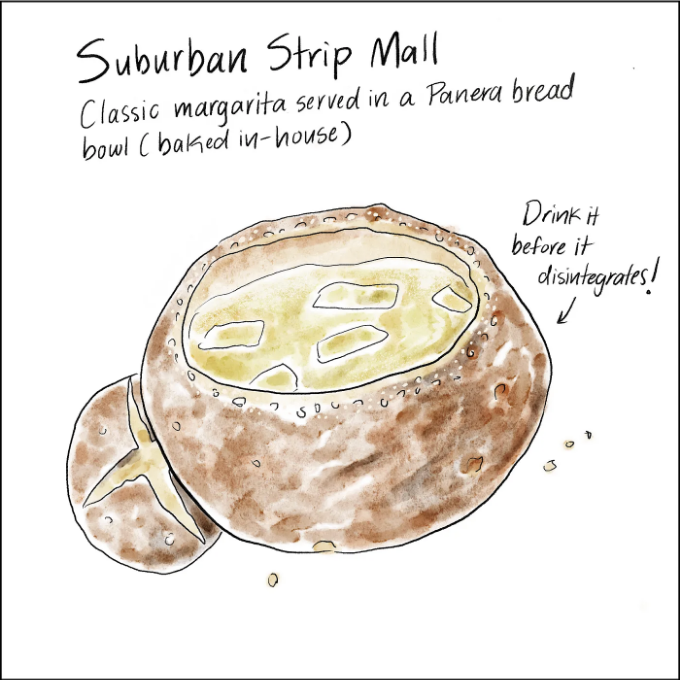 Suburban Strip Mall
Classic margarita served in a Panera bread
bowl (baked in-house)
Drink it
before it
disintegrates!